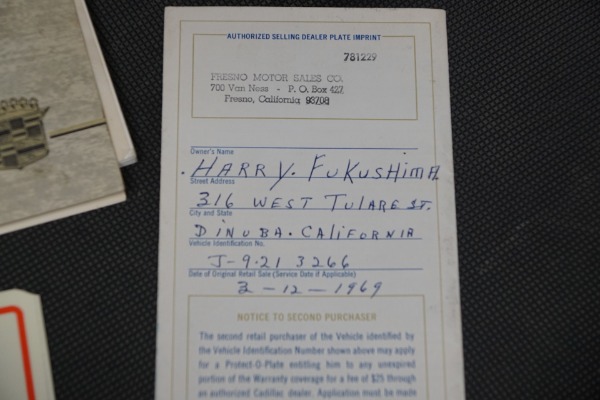 AUTHORIZED SELLING DEALER PLATE IMPRINT
781229
FRESNO MOTOR SALES CO.
700 Van Ness - P. O. Box 427
Fresno, California 93708
Owner's Name
HARRY. FUKUSHIMA
Street Address
316 WEST TULARE ST.
City and State
DINUBA. CALIFORNIA
Vehicle Identification No.
J-9.21 3266
Date of Original Retail Sale (Service Date if Applicable)
3-12-1969
NOTICE TO SECOND PURCHASER
The second retail purchaser of the Vehicle identified by
the Vehicle Identification Number shown above may apply
for a Protect-O-Plate entitling him to any unexpired
portion of the Warranty coverage for a fee of $25 through
an authorized Cadillac dealer. Application must be made